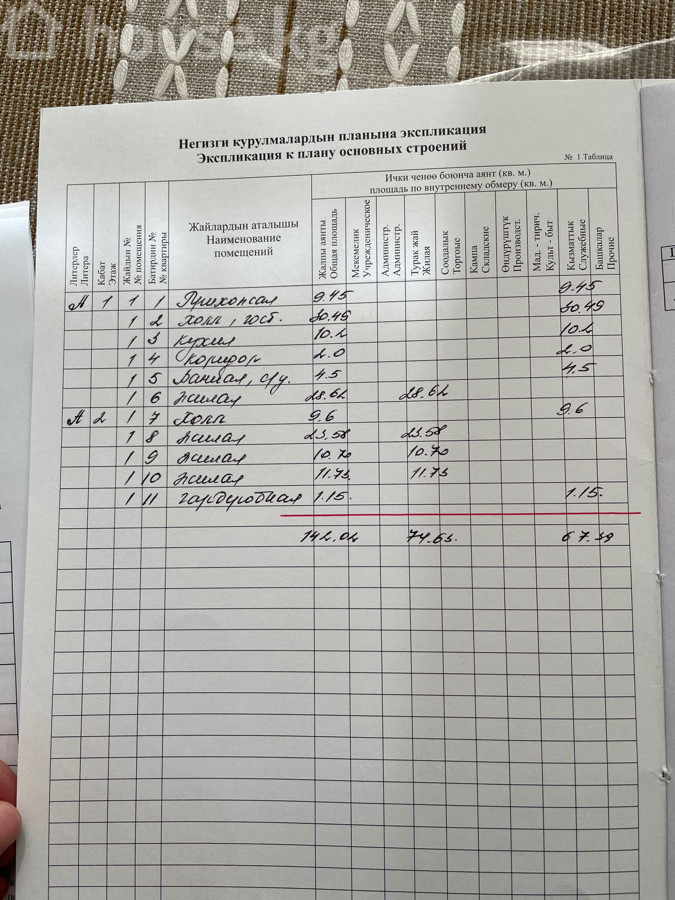 house.kg
Негизги курулмалардын планына экспликация
Экспликация к плану основных строений
№ 1 Таблица
Литерлер Литера
Кабат Этаж
Жайдын № № помещения
Батирдин № № квартиры
Жайлардын аталышы
Наименование
помещений
Ички ченөө боюнча аянт (кв. м.)
площадь по внутреннему обмеру (кв. м.)
Жалпы аянты Общая площадь
Мекемелик Учрежденическое
Администр. Администр.
Турак жай Жилая
Соодалык Торговые
Кампа Складские
Өндүрүштүк Производст.
Мад. - тирич. Культ - быт
Кызматтык Служебные
Башкалар Прочие
А 1 1 1 9.45 9.45
1 2 холл, гост. 30.49 30.49
1 3 кухня 10.2 10.2
1 4 коридор 2.0 2.0
1 5 Ванная, с/у. 4.5 4.5
1 6 жилая 28.62 28.62
А 2 1 7 Холл 9.6 9.6
1 8 жилая 23.58 23.58
1 9 жилая 10.70 10.70
1 10 жилая 11.73 11.73
1 11 гардеробная 1.15. 1.15.
142.02 74.63. 67.39